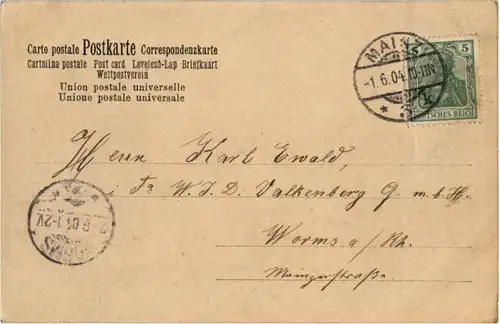 Carte postale Postkarte Correspondenzkarte
Cartolina postale Post card Levelező-Lap Briefkaart
Weltpostverein
Union postale universelle
Unione postale universale
MAINZ
-1.6.04. 10-11N
* 2 *
k
5
DEUTSCHES REICH
Herrn Karl Ewald,
i Fa W. J. D. Valkenberg G. m. b. H.
Worms a/Rh.
Mainzerstraße
6.04.1-2V.
WORMS